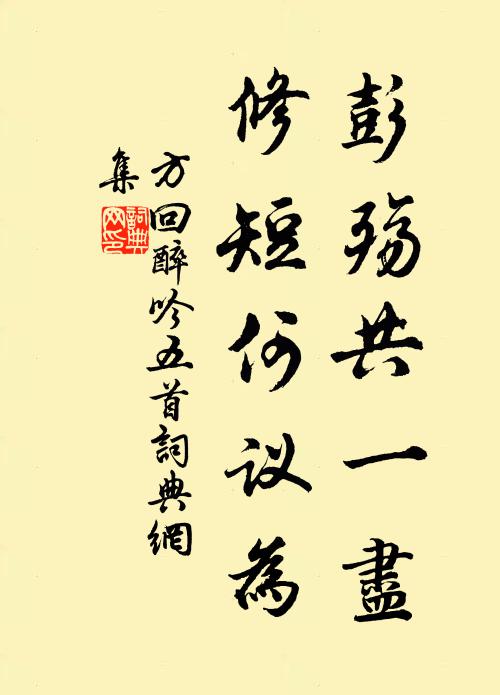 彭殤共一盡
修短何议為
方回醉吟五首詞典網
集
詞典
网印